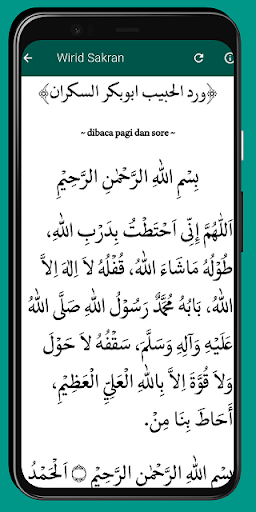 Wirid Sakran
﴿ورد الحبيب ابوبكر السكران﴾
~ dibaca pagi dan sore ~
بِسْمِ اللهِ الرَّحْمٰنِ الرَّحِيْمِ
اَللّٰهُمَّ إِنِّى اَحْتَطْتُ بِدَرْبِ اللهِ،
طُوْلُهُ مَاشَاءَ اللهُ، قُفْلُهُ لاَ اِلٰهَ اِلاَّ
اللهُ، بَابُهُ مُحَمَّدٌ رَسُوْلُ اللهِ صَلَّى اللهُ
عَلَيْهِ وَآلِهِ وَسَلَّمَ، سَقْفُهُ لاَ حَوْلَ
وَلاَ قُوَّةَ اِلاَّ بِاللهِ الْعَلِيِّ الْعَظِيْمِ،
أَحَاطَ بِنَا مِنْ.
بِسْمِ اللهِ الرَّحْمٰنِ الرَّحِيْمِ ۝ اَلْحَمْدُ